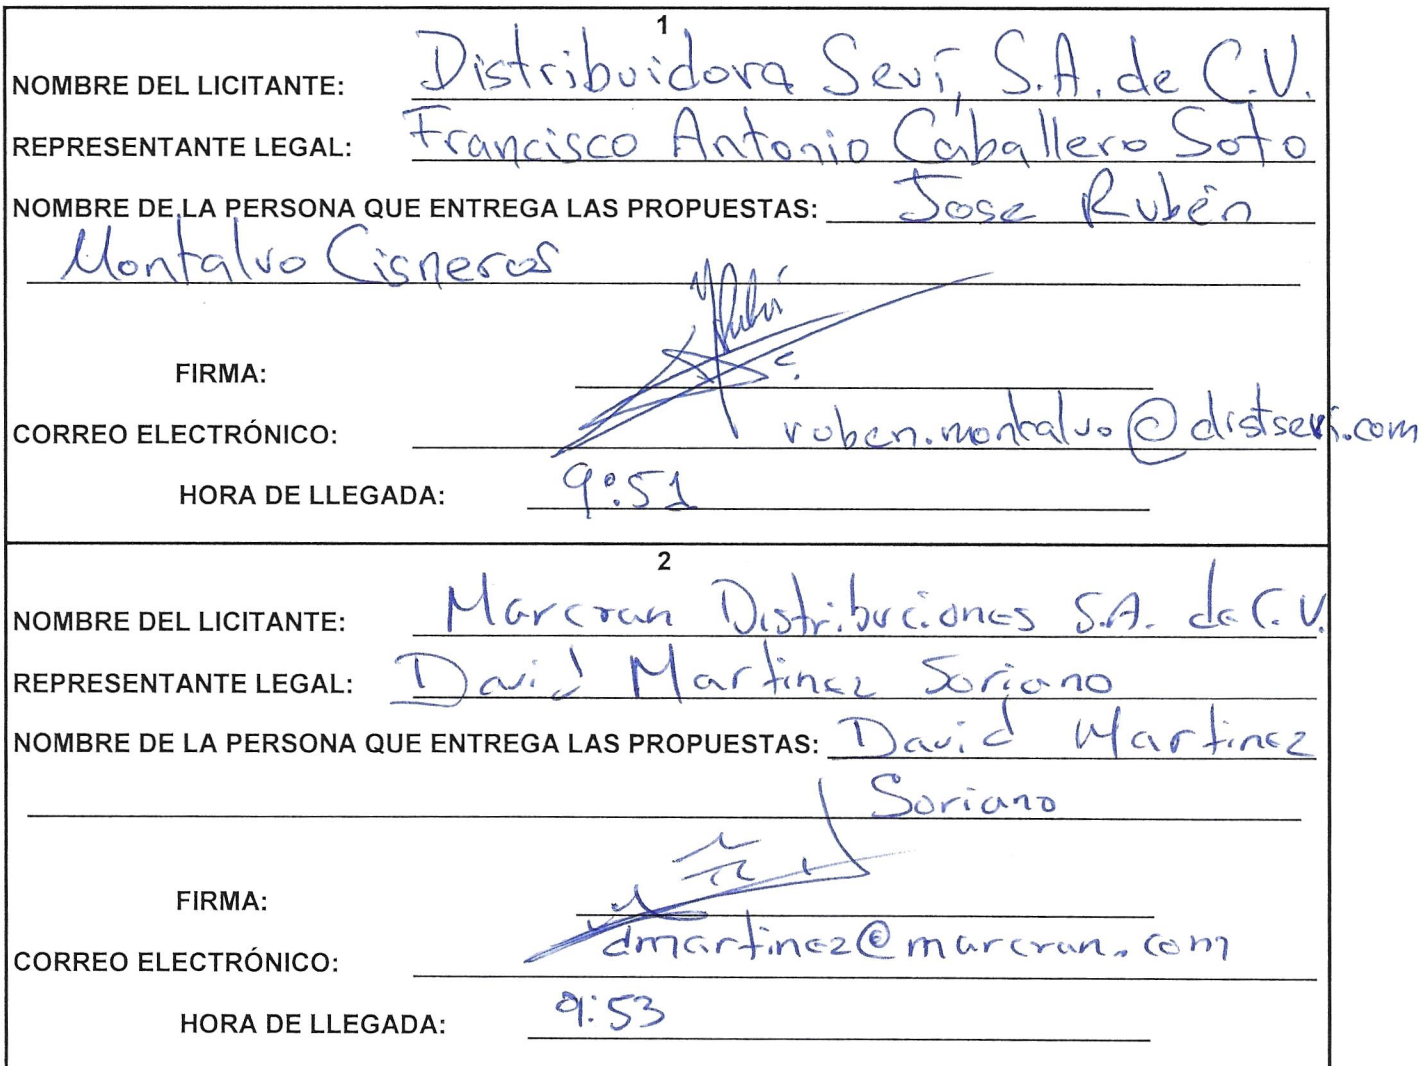 1
NOMBRE DEL LICITANTE: Distribuidora Seví, S.A. de C.V.
REPRESENTANTE LEGAL: Francisco Antonio Caballero Soto
NOMBRE DE LA PERSONA QUE ENTREGA LAS PROPUESTAS: Jose Rubén
Montalvo Cisneros
FIRMA:
CORREO ELECTRÓNICO: ruben.montalvo@distsevi.com
HORA DE LLEGADA: 9:51
2
NOMBRE DEL LICITANTE: Marcran Distribuciones S.A. de C.V.
REPRESENTANTE LEGAL: David Martinez Soriano
NOMBRE DE LA PERSONA QUE ENTREGA LAS PROPUESTAS: David Martinez
Soriano
FIRMA:
CORREO ELECTRÓNICO: dmartinez@marcran.com
HORA DE LLEGADA: 9:53